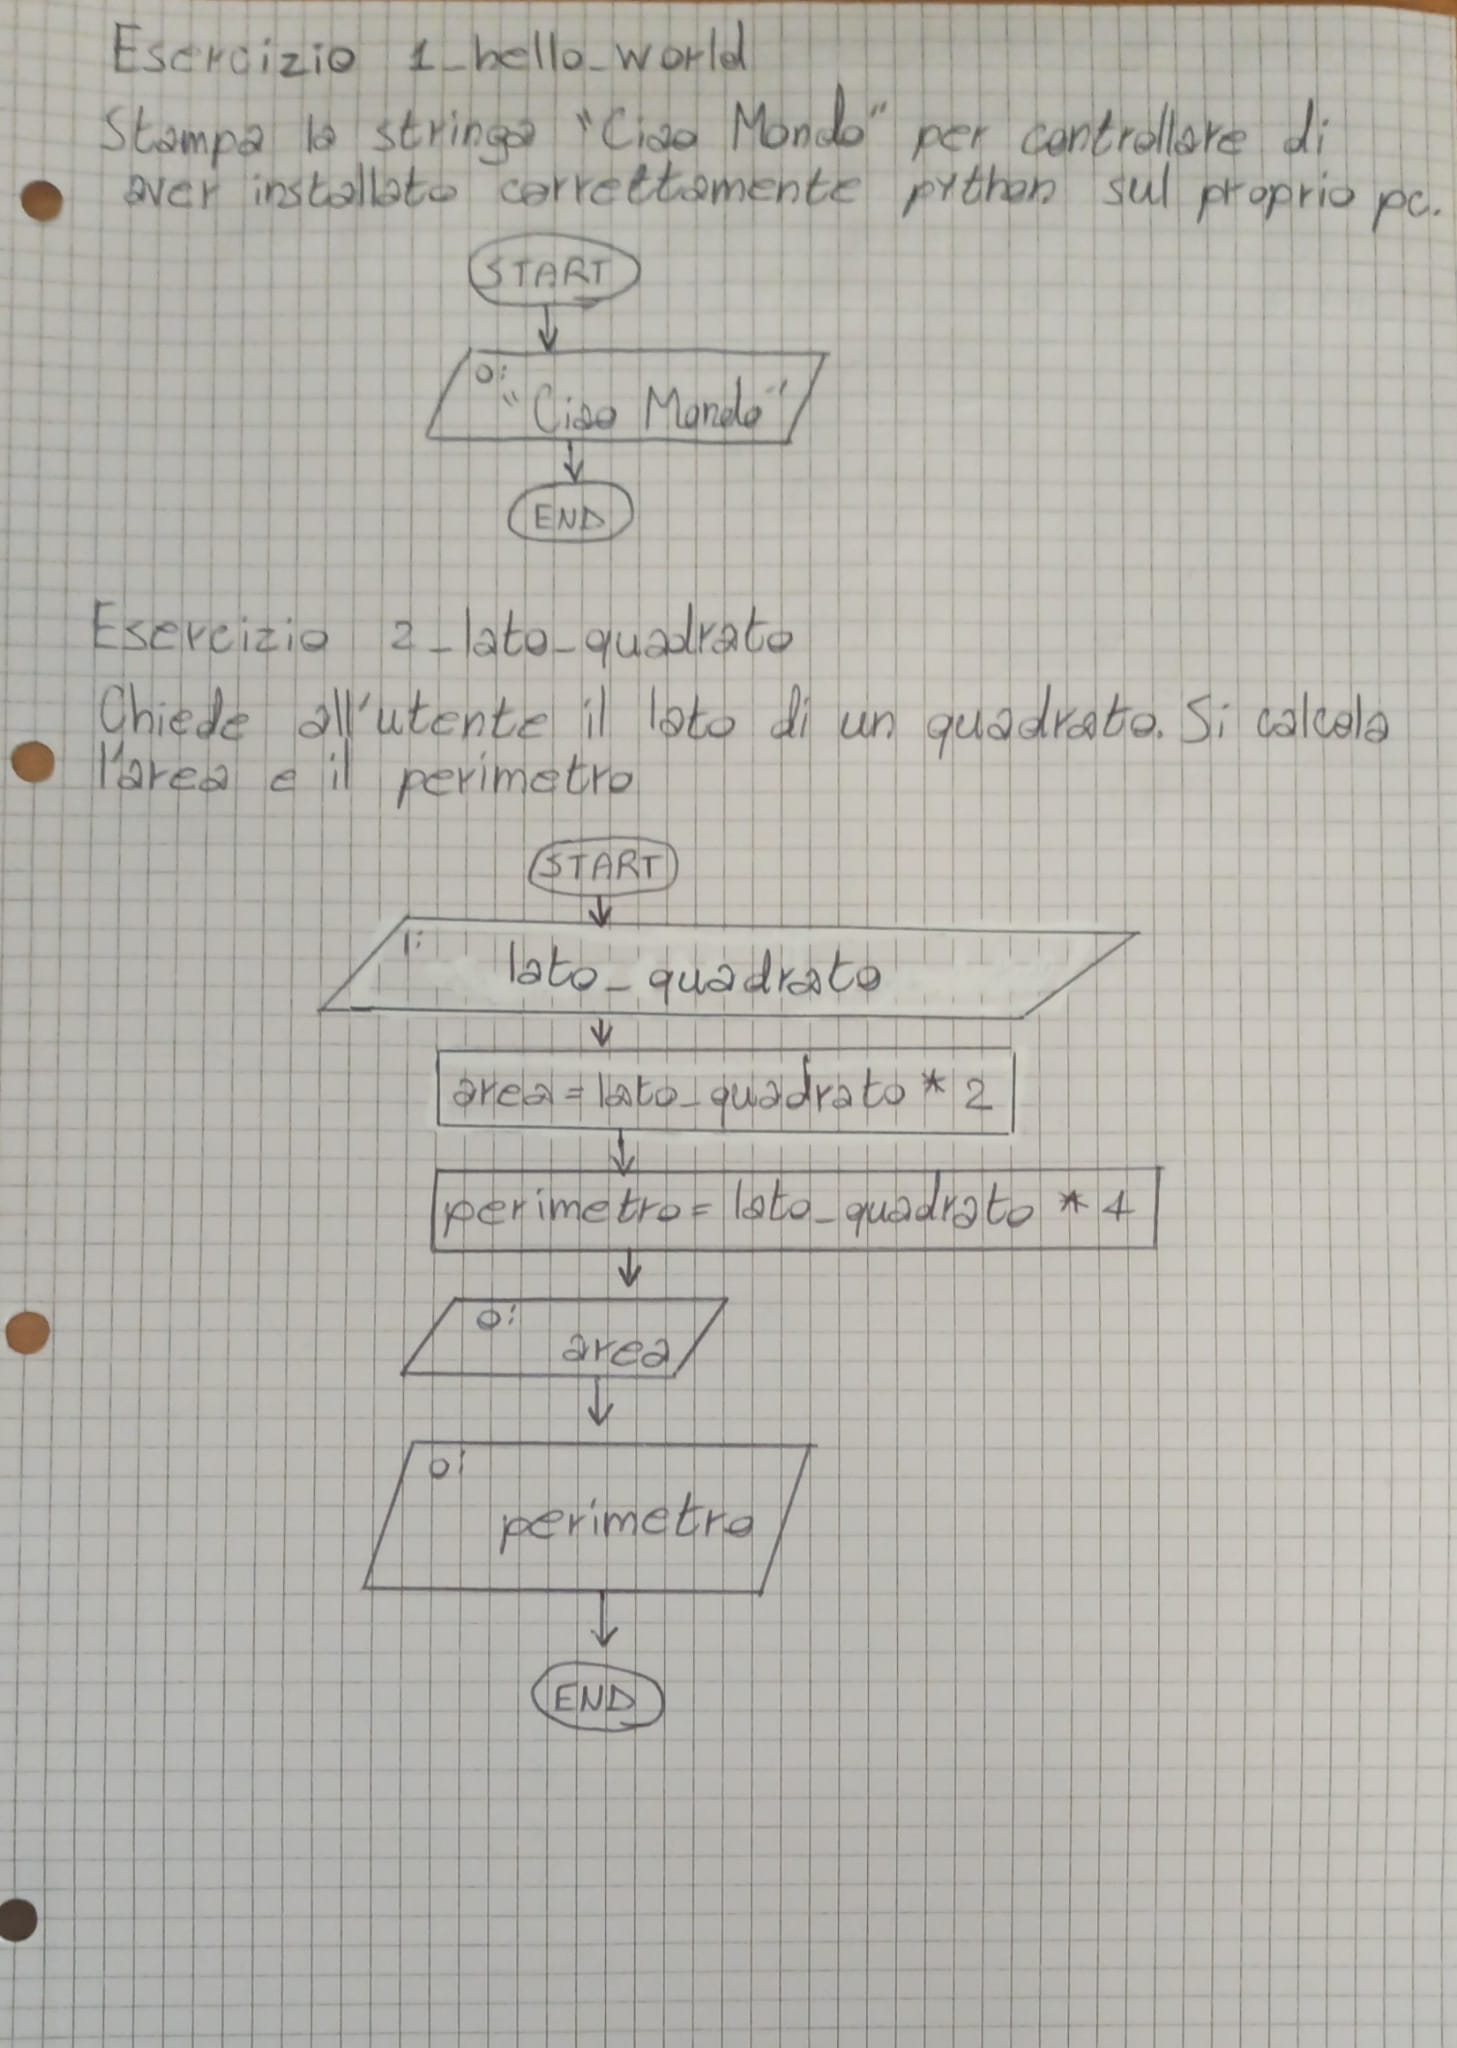 Esercizio 1_hello_world
Stampa la stringa "Ciao Mondo" per controllare di
aver installato correttamente python sul proprio pc.
START
O:
"Ciao Mondo"
END
Esercizio 2_lato_quadrato
Chiede all'utente il lato di un quadrato. Si calcola
l'area e il perimetro
START
I:
lato_quadrato
area = lato_quadrato * 2
perimetro = lato_quadrato * 4
O:
area
O:
perimetro
END